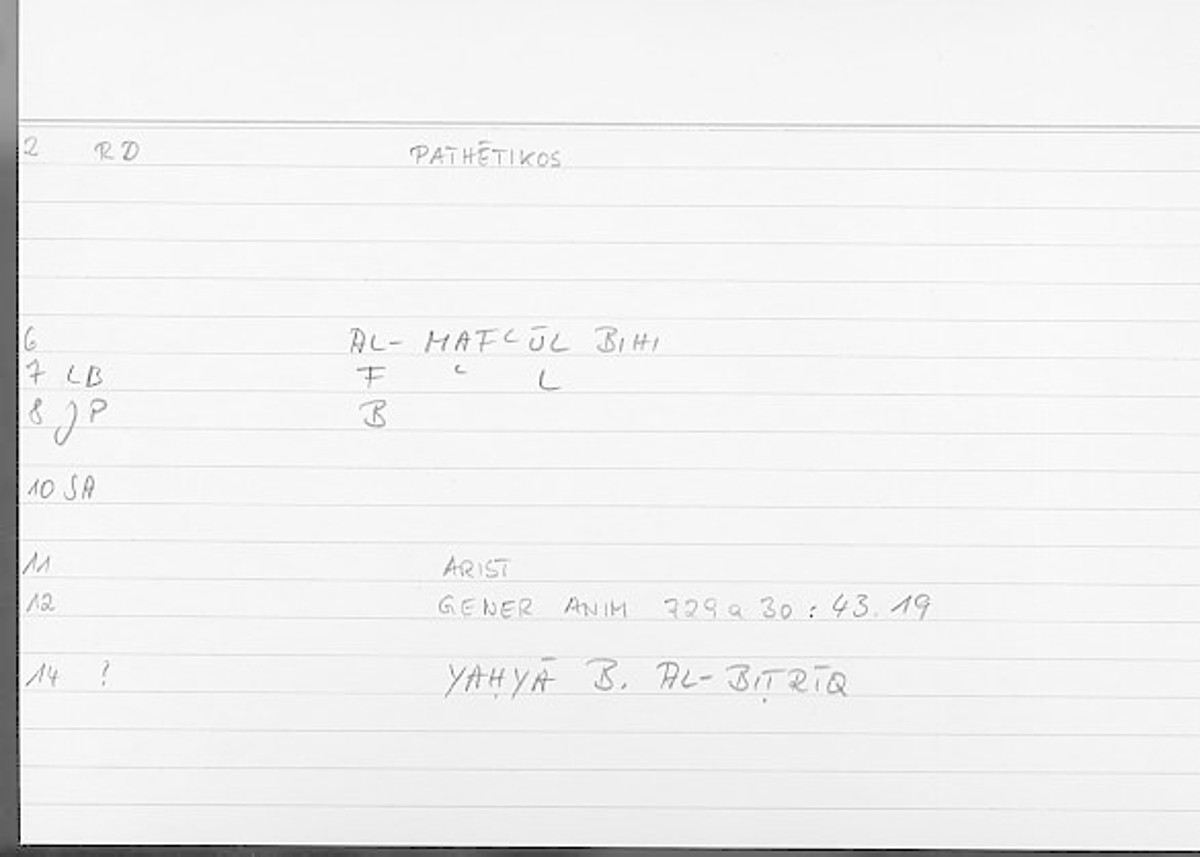 2 RD PATHĒTIKOS
6 AL- MAFʿŪL BIHI
7 LB F ʿ L
8 JP B
10 SA
11 ARIST
12 GENER ANIM 729a 30 : 43.19
14 ? YAḤYĀ B. AL-BIṬRĪQ